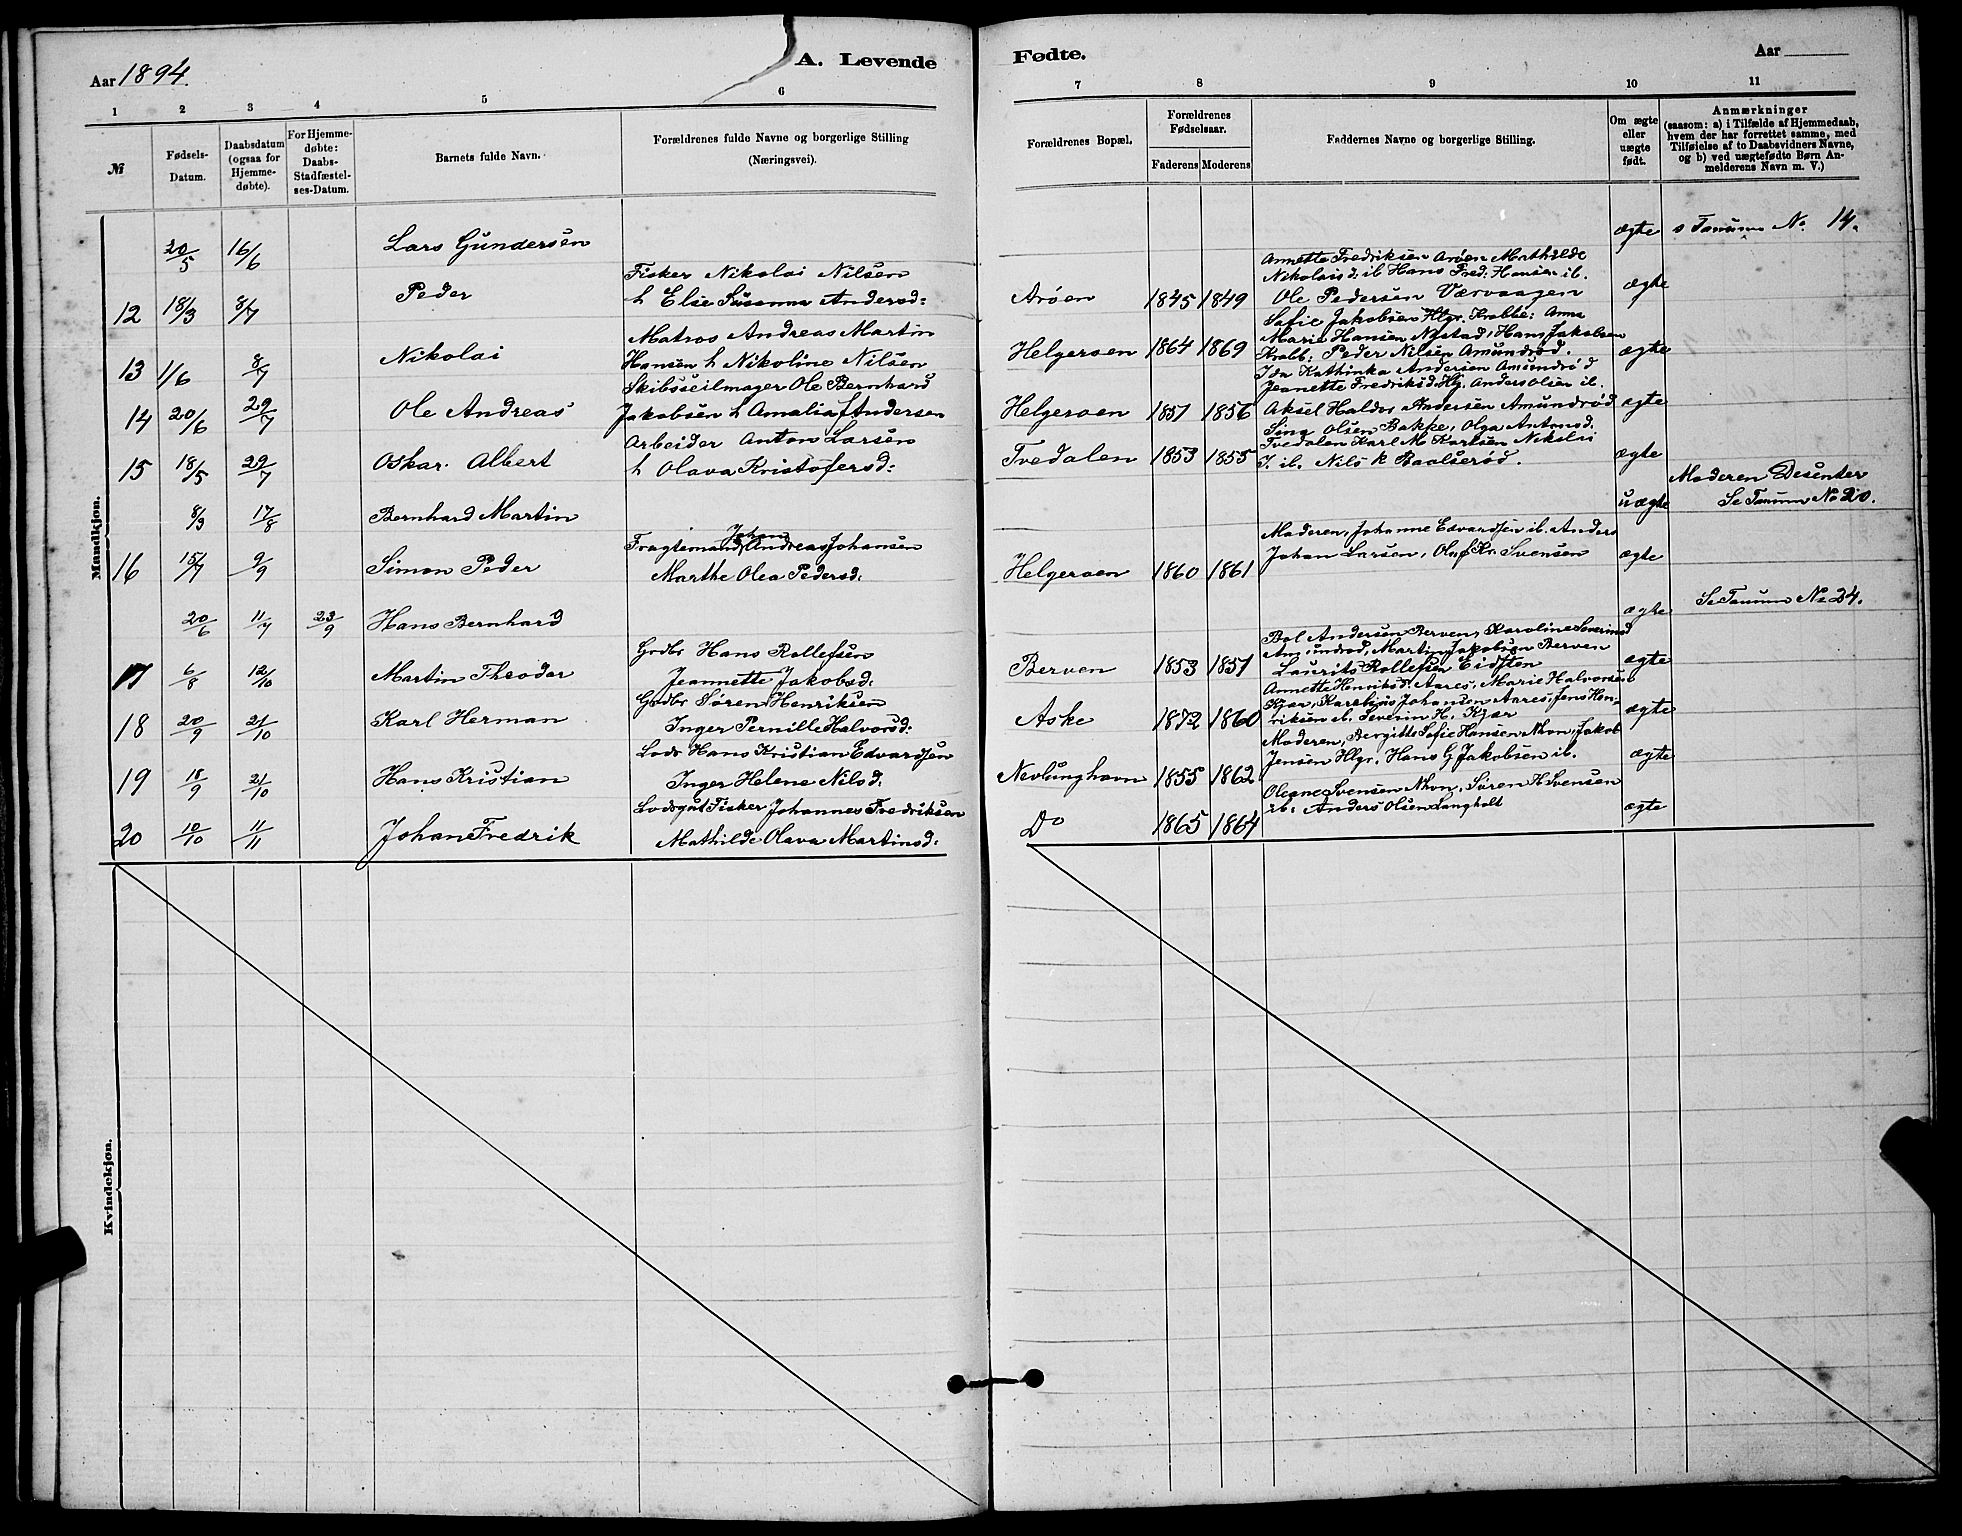 Aar 1894.
A. Levende
1 2 3 4 5 6
№
Fødsels-Datum.
Daabsdatum (ogsaa for Hjemmedøbte).
For Hjemmedøbte: Daabs-Stadfæstelses-Datum.
Barnets fulde Navn.
Forældrenes fulde Navne og borgerlige Stilling
(Næringsvei).
Mandkjøn.
20/5 16/6 Lars Gundersen
Fisker Nikolai Nilsen
12 18/3 8/7 Peder h Else Susanna Andersd:
Matros Andreas Martin
13 1/6 8/7 Nikolai Hansen h Nikoline Nilsen
Skibsseilmager Ole Bernhard
14 20/6 29/7 Ole Andreas Jakobsen h Amalia Andersen
Arbeider Anton Larsen
15 18/5 29/7 Oskar Albert h Olava Kristofersd:
8/3 17/8 Bernhard Martin
Johan
Fragtemand Andreas Johansen
16 15/7 9/9 Simon Peder Marthe Olea Pedersd:
20/6 11/7 23/9 Hans Bernhard
Grdbr Hans Rollefsen
17 6/8 12/10 Martin Theodor Jeannette Jakobsd:
Grdbr Søren Henriksen
18 20/9 21/10 Karl Herman Inger Pernille Halvorsd:
Lods Hans Kristian Edvardsen
19 18/9 21/10 Hans Kristian Inger Helene Nilsd:
Lodsgut Fisker Johannes Fredriksen
20 10/10 11/11 Johan Fredrik Mathilde Olava Martinsd:
Kvindekjøn.
Fødte.
Aar
7 8 9 10 11
Forældrenes Bopæl.
Forældrenes Fødselsaar.
Faderens Moderens
Faddernes Navne og borgerlige Stilling.
Om ægte eller uægte født.
Anmærkninger
(saasom: a) i Tilfælde af Hjemmedaab,
hvem der har forrettet samme, med
Tilføielse af to Daabsvidners Navne,
og b) ved uægtefødte Børn Anmelderens Navn m. V.)
ægte s Tanum No 14.
Annette Fredriksen Arøen Mathilde
Nikolaisd: ib Hans Fred: Hansen ib.
Arøen 1845 1849 Ole Pedersen Værvaagen ægte
Sofie Jakobsen Hlgr. Krabbe: Anna
Marie Hansen Nystad, Hans Jakobsen
Helgeroen 1864 1869 Krabb: Peder Nilsen Amundrød. ægte
Ida Kathinka Andersen Amundrød
Jeanette Fredriksd. Hlg. Anders Olsen ib.
Helgeroen 1851 1856 Aksel Haldor Andersen Amundrød ægte
Sina Olsen Bakke, Olga Antonsd:
Tvedalen Karl M Karlsen Nikolai
Tvedalen 1853 1855 J. ib. Nils K Baalserød. ægte
Moderen Desenter
uægte Se Tanum No 20.
Moderen, Johanne Edvardsen ib. Anders
Johan Larsen, Olaf Kr. Svensen
Helgeroen 1860 1861 ægte
ægte Se Tanum No 24.
Bol Andersen Berven, Karoline Severinsd
Amundrød, Martin Jakobsen Berven
Berven 1853 1857 Laurits Rollefsen Eidsten ægte
Annette Henriksd. Aares, Marie Halvorsen
Kjær, Karelius Johansen Aares, Jens Hen-
Aske 1872 1860 riksen ib. Severin H. Kjær ægte
Moderen, Bergitte Sofie Hansen Nhvn, Jakob
Jensen Hlgr, Hans G Jakobsen ib.
Nevlunghavn 1855 1862 ægte
Oleane Svensen Nhvn, Søren H Svensen
ib: Anders Olsen Langholt
Do 1865 1864 ægte